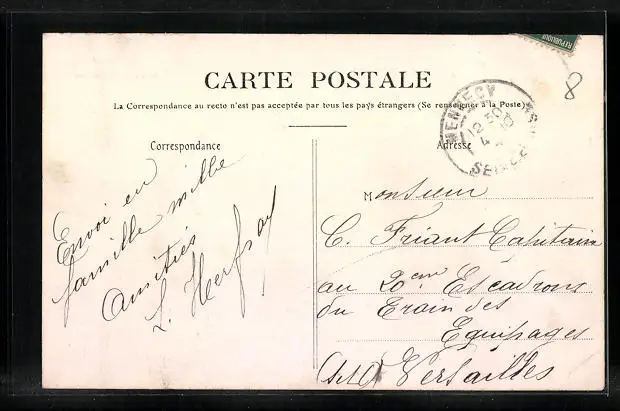 REPUBLIQUE
CARTE POSTALE
La Correspondance au recto n'est pas acceptée par tous les pays étrangers (Se renseigner à la Poste)
8
MENNECY
12 30
4
10
SEINE
Correspondance
Envoi en
famille mille
Amitiés
Adresse
Monsieur
C. Friant Capitain
au 20eme Escadrons
du Train des
Equipages
Versailles